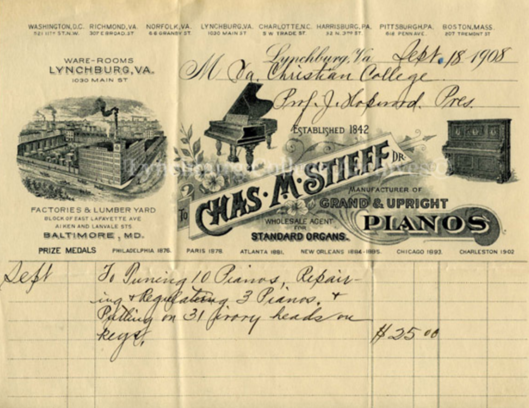 WASHINGTON, D.C. RICHMOND, VA. NORFOLK, VA. LYNCHBURG, VA. CHARLOTTE, N.C. HARRISBURG, PA. PITTSBURGH, PA. BOSTON, MASS.
521 11TH ST. N.W. 307 E. BROAD ST. 66 GRANBY ST. 1030 MAIN ST 5 W. TRADE ST. 32 N. 2ND ST. PENN AVE. TREMONT ST
WARE-ROOMS
LYNCHBURG, VA.
1030 MAIN ST
Lynchburg, Va Sept. 18 1908
M Va. Christian College
Prof. J. Hopwood, Pres.
ESTABLISHED 1842
TO CHAS. M. STIEFF DR
MANUFACTURER OF
GRAND & UPRIGHT
PIANOS
WHOLESALE AGENT
FOR
STANDARD ORGANS.
FACTORIES & LUMBER YARD
BLOCK OF EAST LAFAYETTE AVE
AIKEN AND LANVALE STS.
BALTIMORE, MD.
PRIZE MEDALS PHILADELPHIA 1876. PARIS 1878. ATLANTA 1881. NEW ORLEANS 1884-1885. CHICAGO 1893. CHARLESTON 1902
Sept To Tuning 10 Pianos, Repair-
ing & Regulating 3 Pianos. &
Putting on 31 ivory heads on
keys. $25 00